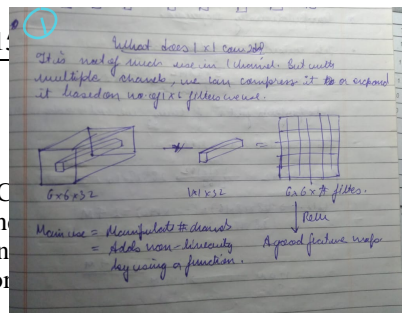 1
What does 1x1 conv do?
It is not of much use in 1 channel. But with
multiple channels, we can compress it to or expand
it based on no. of 1x1 filters we use.
6x6x32 * 1x1x32 = 6x6x # filters.
Main use = Manipulate # channels
= Adds non-linearity
by using a function.
Relu
A good feature map